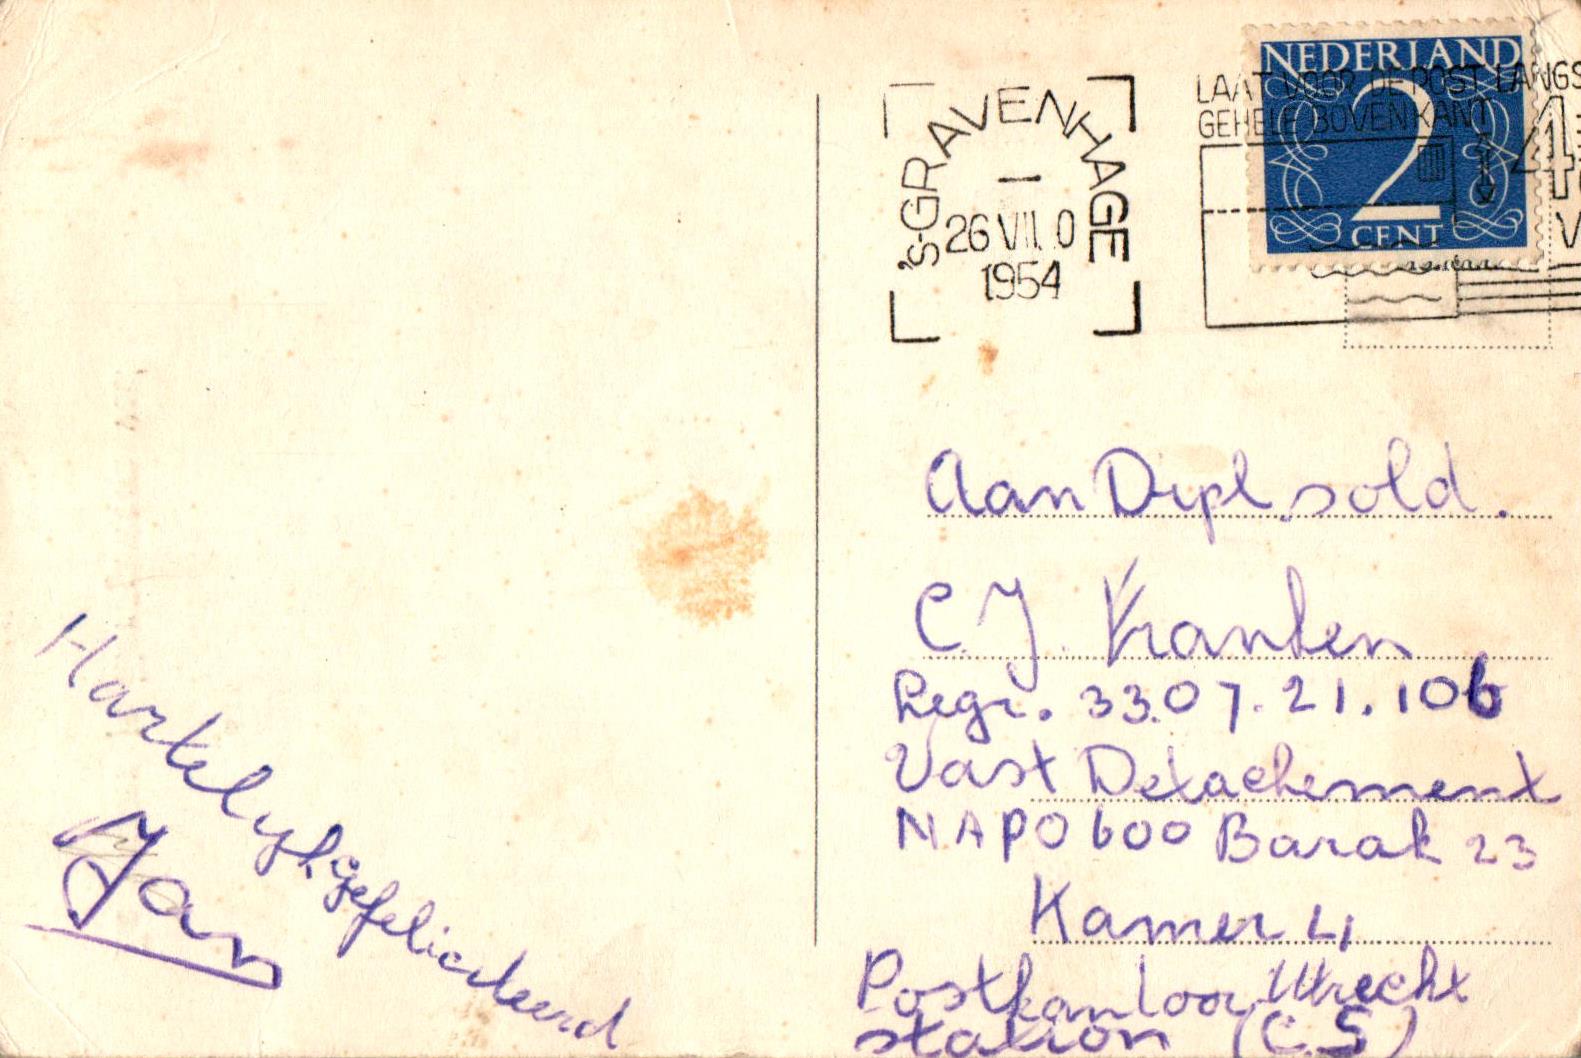 NEDERLAND
2
CENT
'S-GRAVENHAGE
26 VII. 0
1954
LAAT VOOR DE POST LANGS
GEHELE BOVENKANT
4
Aan Dipl. sold.
C. J. Vranken
Regr. 33.07.21.106
Vast Detachement
NAPO 600 Barak 23
Kamer 4
Postkantoor Utrecht
station (C.S)
Hartelyk gefeliciteerd
Jan